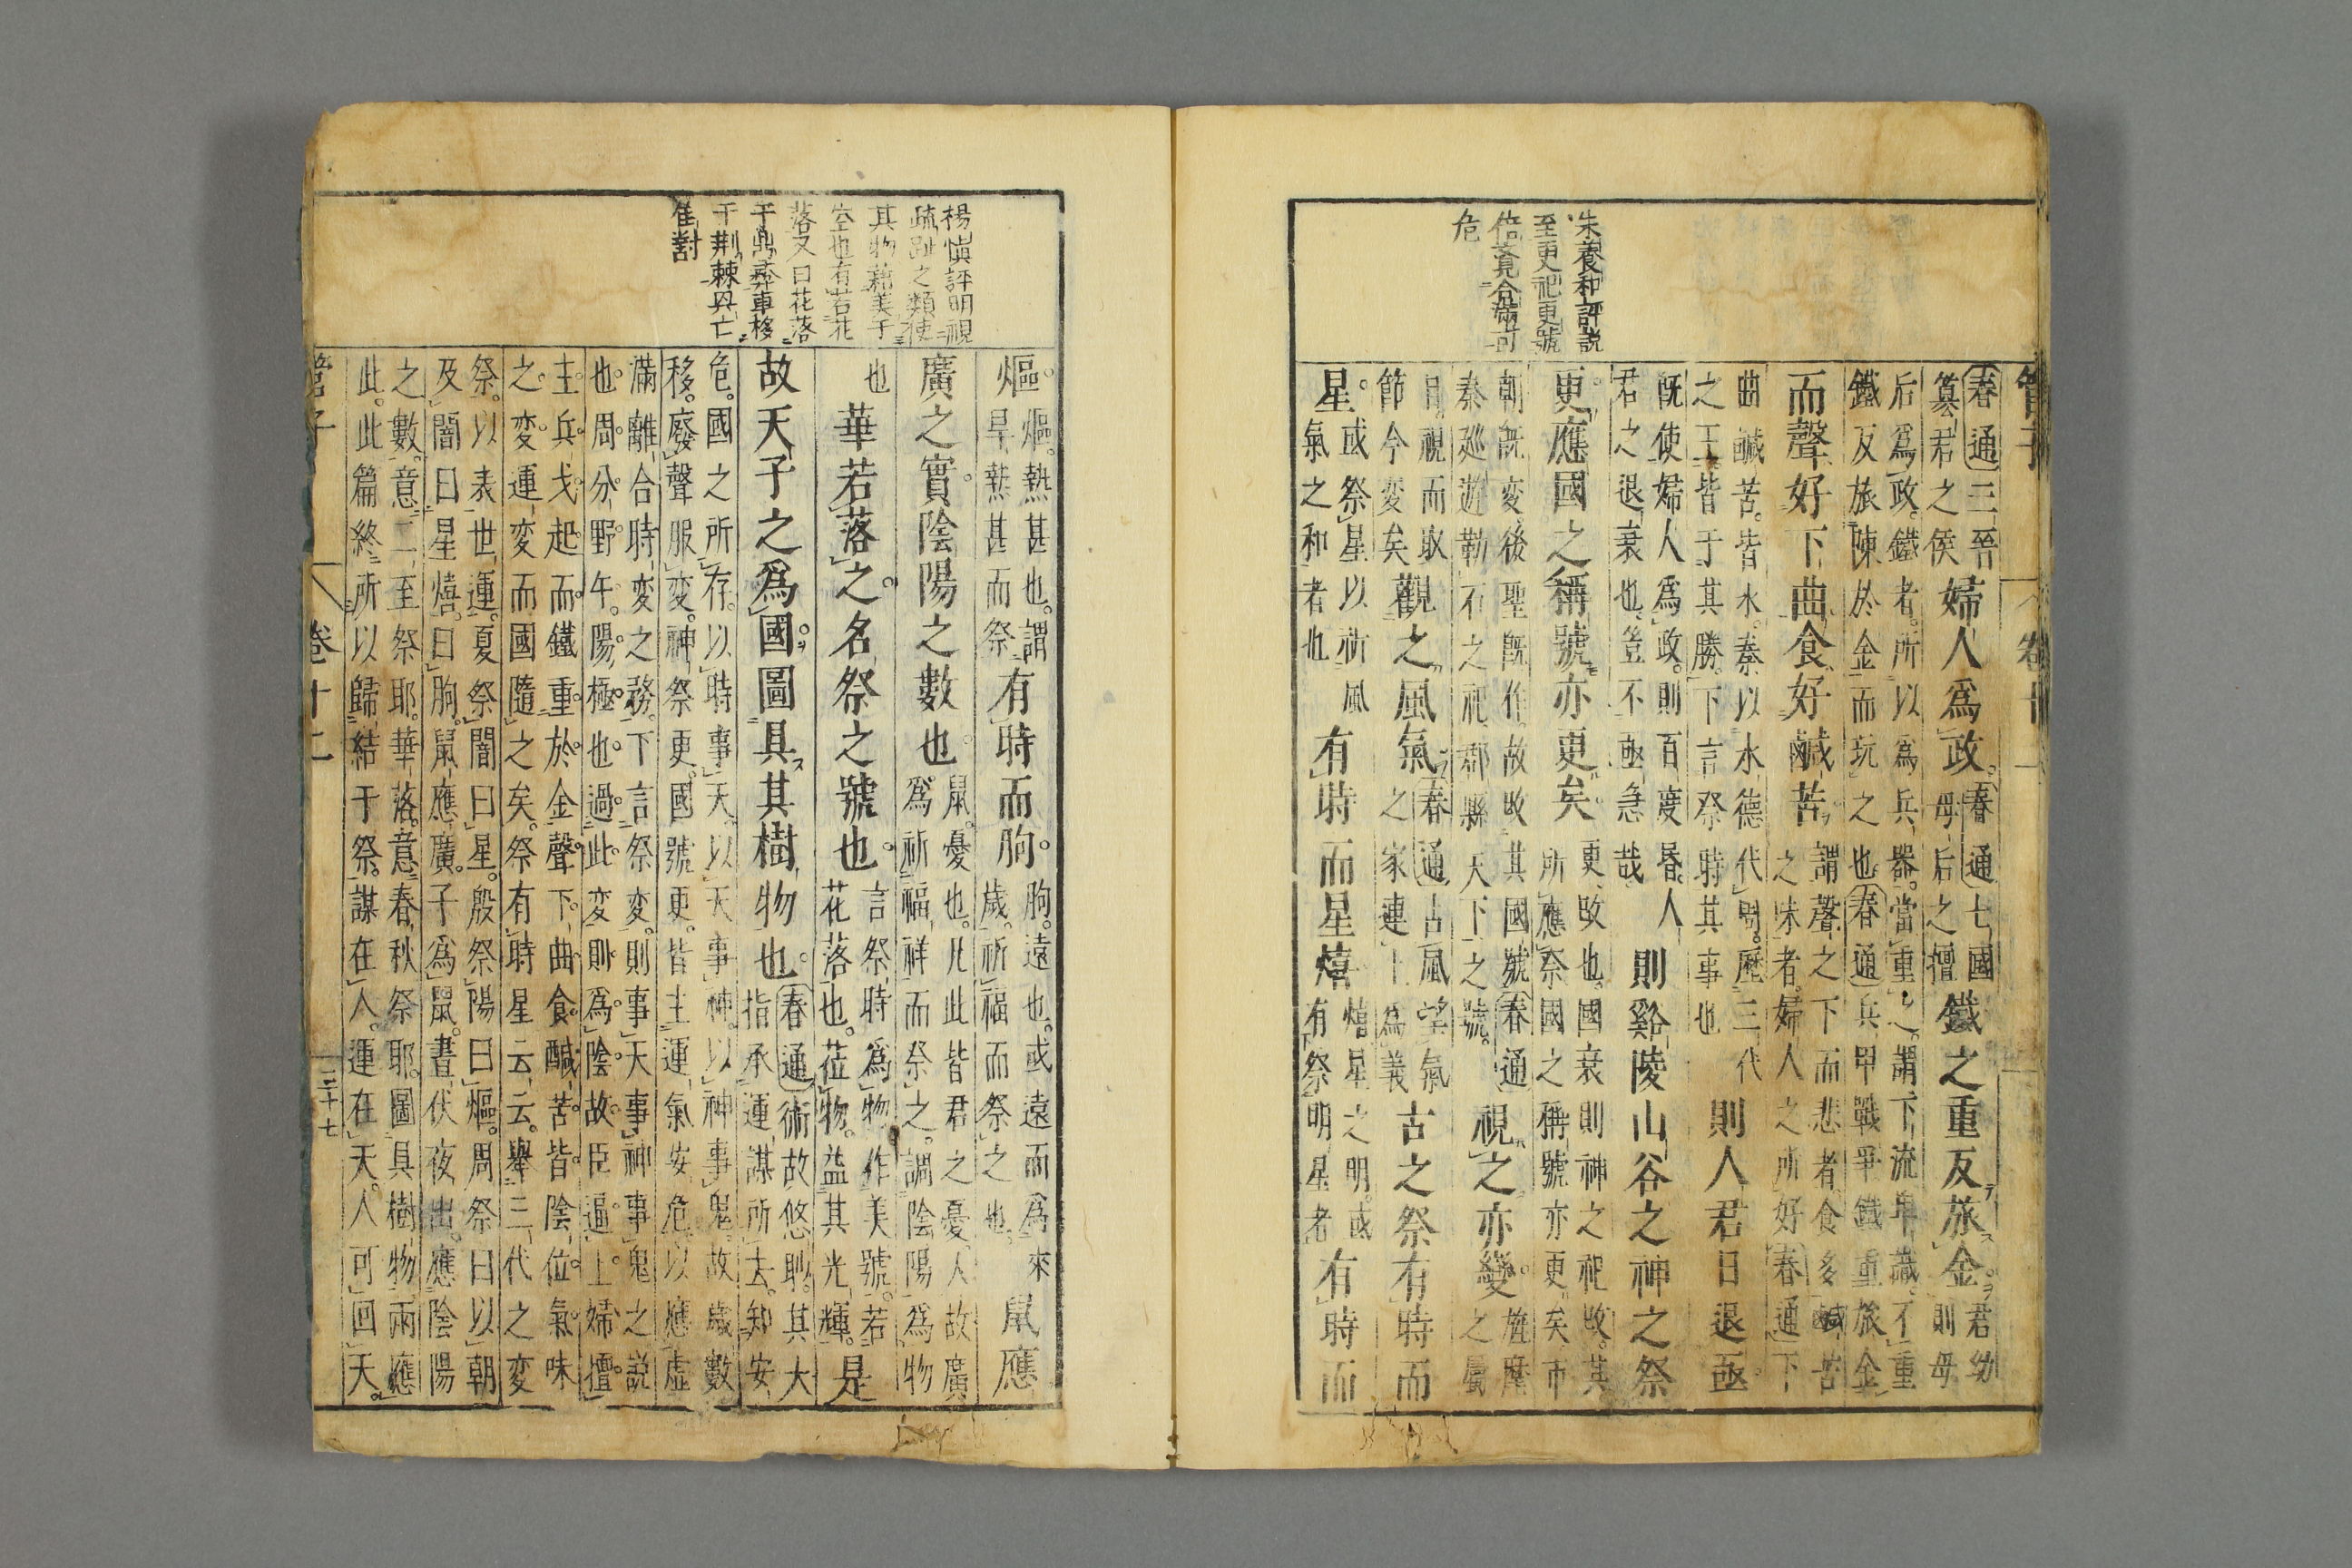 朱養和評説
至更祀更號
倍覺合滿可
危
管子
卷十
春通三晉
篡君之侯
婦人爲政
春通七國
母后之擅
鐵之重反旅金
君幼
則母
后爲政鐵者所以爲兵器當重之謂下流卑識不重
鐵反旅陳於金而玩之也春通兵甲戰爭鐵重旅金
而聲好下曲食好鹹苦
謂聲之下而悲者食多鹹苦
之味者婦人之所好春通下
曲鹹苦皆水秦以水德代周歷三代
之王皆于其勝下言祭時其事也
則人君日退亟
旣使婦人爲政則百度昬人
君之退衰也豈不亟急哉
則谿陵山谷之神之祭
更應國之稱號亦更矣
更改也國衰則神之祀改其
所應祭國之稱號亦更矣市
朝旣変後聖旣作故改其國號春通
秦廵遊勒石之祀郡縣天下之號
視之亦變
旌麾
之屬
目視而取
節令変矣
觀之風氣
春通古風望氣
之家連上爲義
古之祭有時而
星
或祭星以祈風
氣之和者也
有時而星熺
熺星之明或
有祭明星者
有時而
楊愼評明視
疏趾之類使
其物藉美于
空也有若花
落又曰花落
于鼎彝車移
于荆棘丹亡
隹對
熰
熰熱甚也謂
旱熱甚而祭
有時而朐
朐遠也或遠而爲來
歲祈福而祭之也
鼠應
廣之實陰陽之數也
鼠憂也凡此皆君之憂人故廣
爲祈福祥而祭之謂陰陽爲物
也
華若落之名祭之號也
言祭時爲物作美號若
花落也莅物益其光輝
是
故天子之爲國圖具其樹物也
春通術故悠耿其大
指承運謀所去知安
危國之所存以時事天以天事神以神事鬼故歲數
移廢聲服変神祭更國號更皆主運氣安危以應虛
滿離合時変之務下言祭変則事天事神事鬼之説
也周分野午陽極也過此変則爲陰故臣逼上婦擅
主兵戈起而鐵重於金聲下曲食鹹苦皆陰位氣味
之変運変而國隨之矣祭有時星云云舉三代之変
祭以表世運夏祭闇曰星殷祭陽曰熰周祭曰以朝
及闇曰星熺曰朐鼠應廣子爲鼠晝伏夜出應陰陽
之數意二至祭耶華落意春秋祭耶圖具樹物兩應
此此篇終所以歸結于祭謀在人運在天人可回天
管子
卷十二
三十七